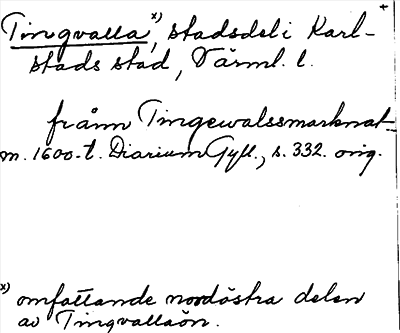 Tingvalla x), stadsdel i Karl-
stads stad, Värml. l.
frånn Tingewalssmarknat
m. 1600-t. Diarium Gyll., s. 332. orig.
x) omfattande nordöstra delen
av Tingvallaön.